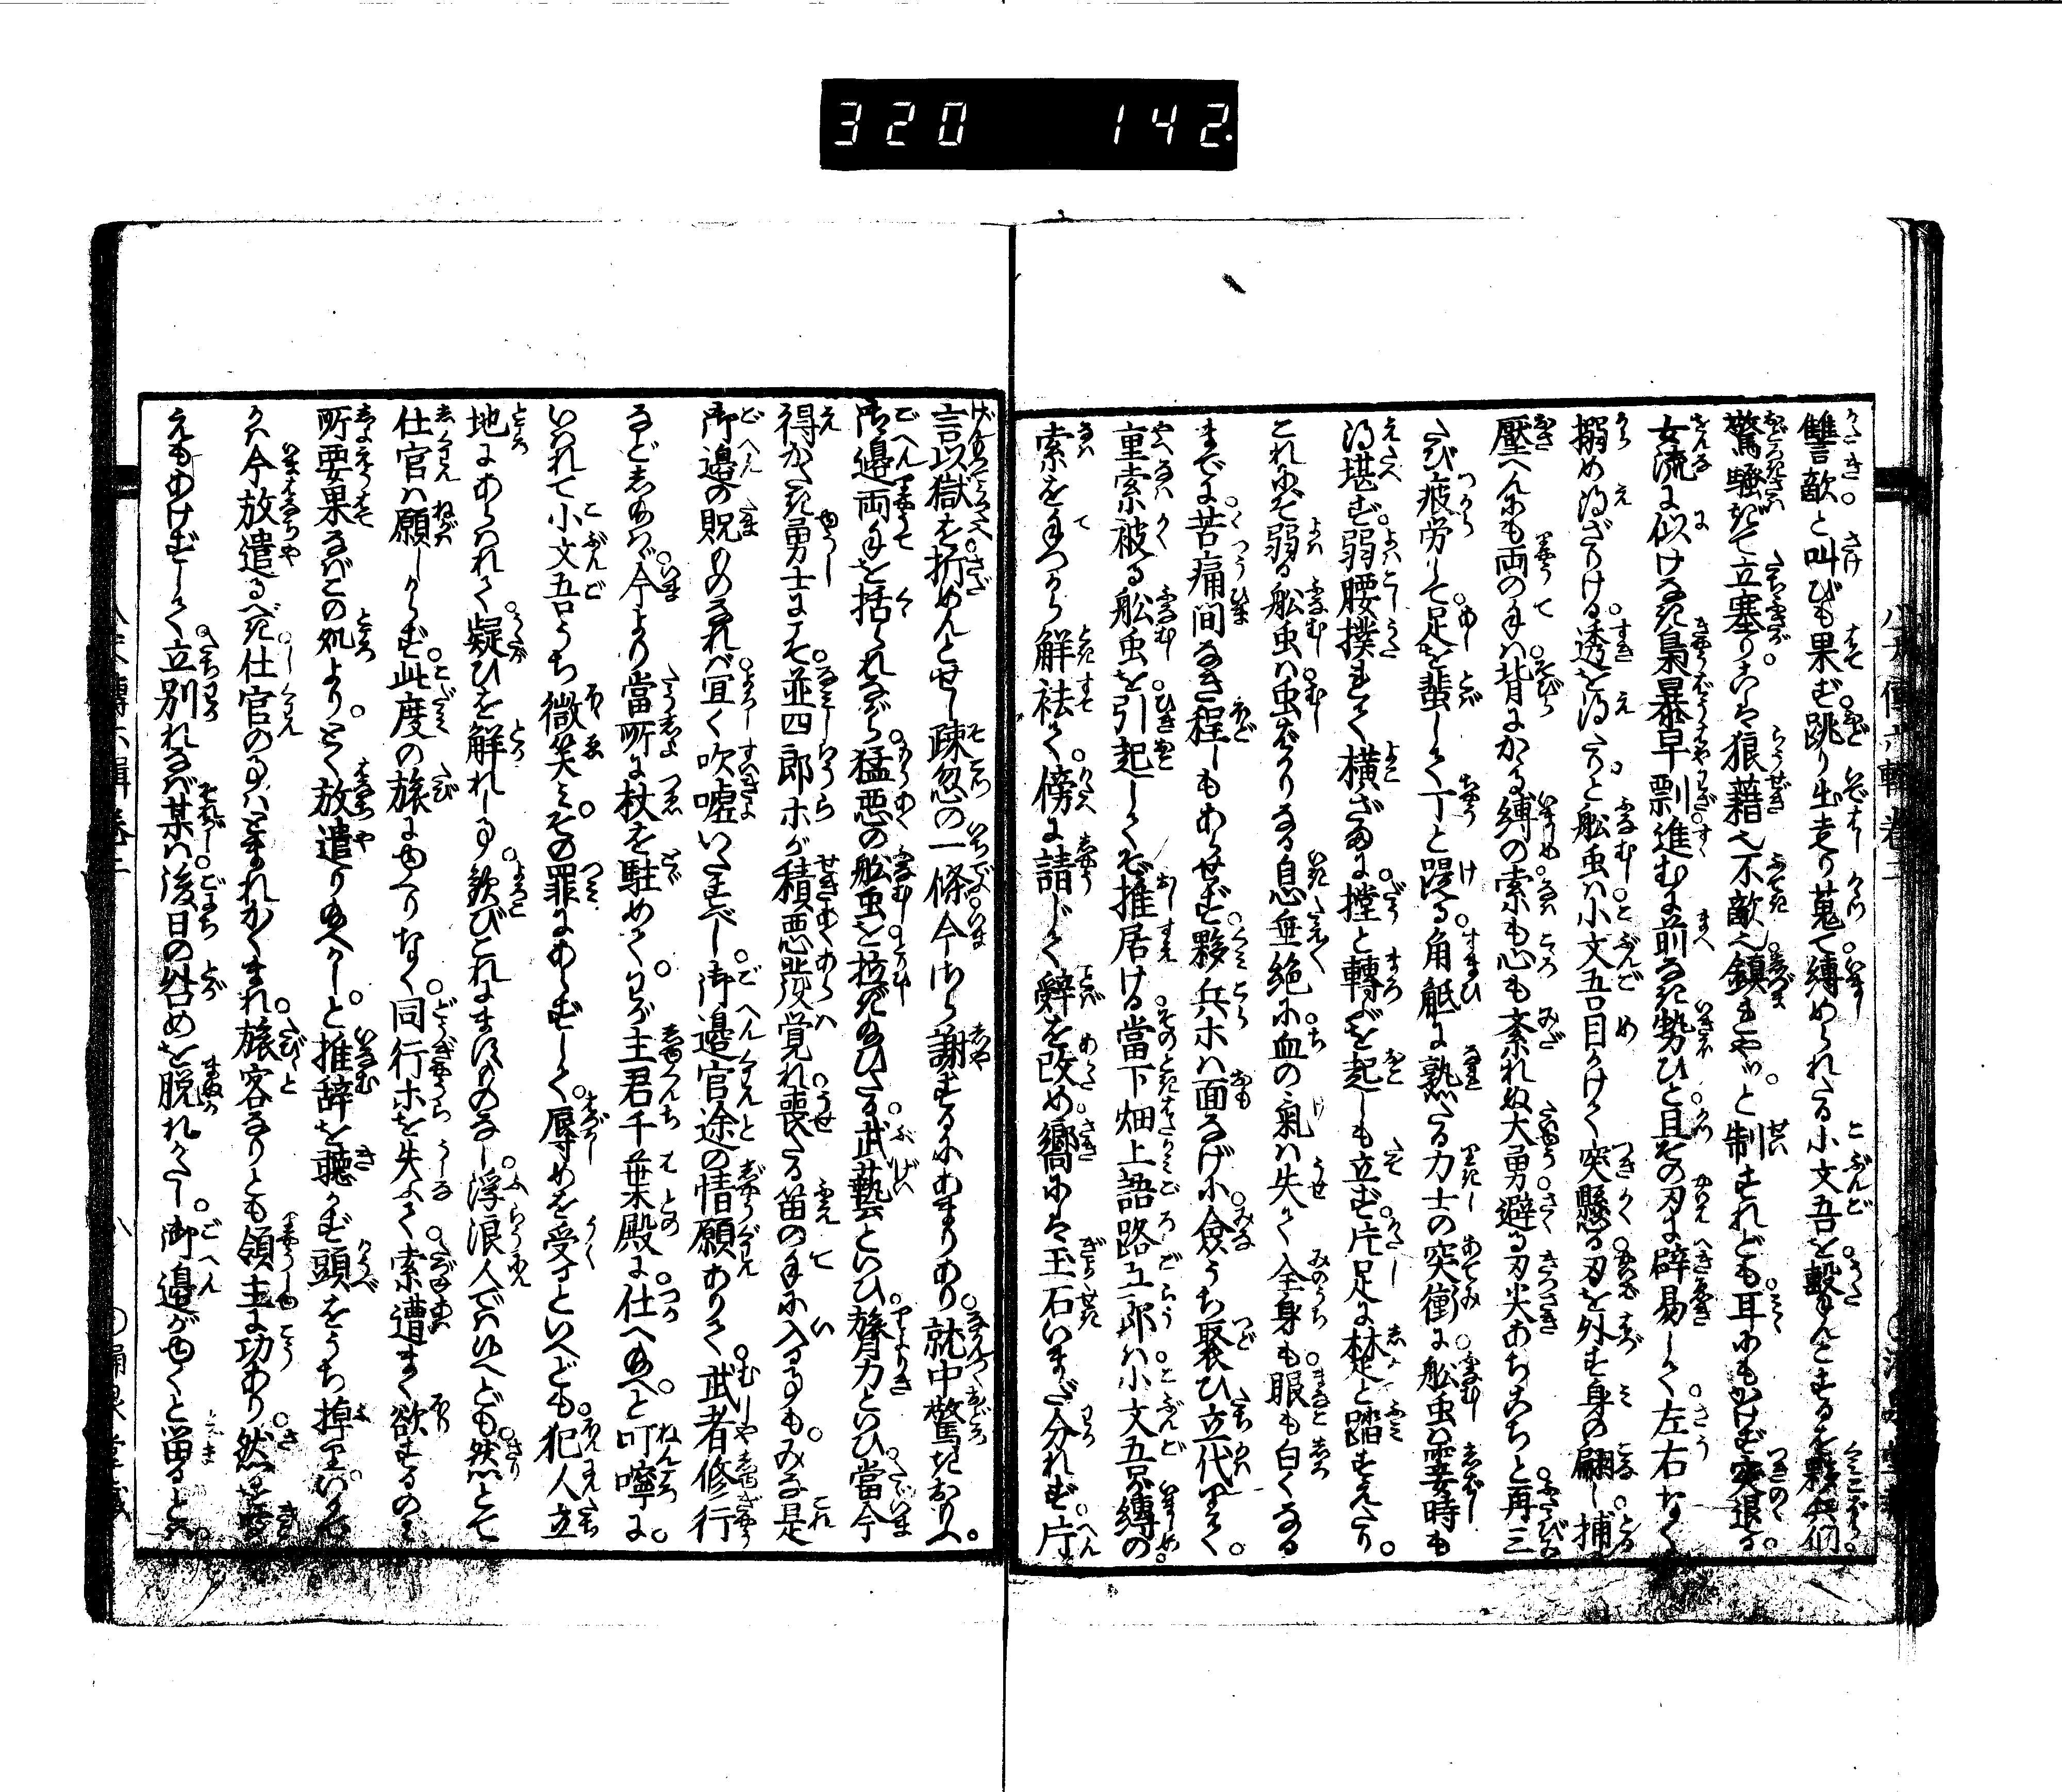 320 142.
讐敵と叫びも果ず跳り出走り蒐て縛められたる小文吾を撃んとするを夥兵們
驚騒ぎて立塞りこは狼藉也不敵也鎮まずやと制すれども耳にもかけず突退る
女流に似げなき梟暴早剽進むに前なき勢ひと且その刃に辟易して左右なく
搦め得ざりける透を得たりと舩虫は小文吾目がけて突懸る刃を外す身の翩し捕
壓へんにも両の手は背にかゝる縛の索も心も紊れぬ大勇避る刃尖あちこちと再三
たび疲労して足を蜚して丁と踢る角觝に熟たる力士の突衝に舩虫は霎時も
得堪ず弱腰撲れて横ざまに撞と轉ぶを起しも立ず片足に楚と踏すえたり
これにぞ弱る舩虫は虫ばかりなる息垂絶に血の氣は失て全身も眼も白くなる
までに苦痛間なき程しもあらせず夥兵ホは面なげに僉うち聚ひ立代りて
重索被る舩虫を引起してぞ推居ける當下畑上語路五郎は小文吾が縛の
索を手づから解祛て傍に請じて辭を改め嚮には玉石いまだ分れず片
言以獄を折めんとせし疎忽の一條今さら謝するにあまりあり就中驚きおもふ
御邊両手を括られながら猛悪の舩虫を拉ぎ給ひたる武藝といひ膂力といひ當今
得がたき勇士にこそ並四郎ホが積悪發覚れ喪たる笛の手に入る事もみな是
御邊の貺ものなれバ宜く吹嘘いたすべし御邊官途の情願ありて武者修行
などしあはゞ今より當所に杖を駐めてわが主君千葉殿に仕へ給へと叮嚀に
いはれて小文吾うち微笑みその罪にあらずして辱めを受るといへども犯人立
地にあらはれて疑ひを解れし事歓びこれにますものなし浮浪人で候へども然とて
仕官は願しからず此度の旅にゆくりなく同行ホを失ふて索遭まく欲するのみ
所要果なばこの処よりとく放遣り給へかしと推辞を聴かず頭をうち掉
今放遣るべき仕官の事はとまれかくまれ旅客なりとも領主に功あり然るを
えもあげずして立別れなば某は後日の咎めを脱れがたし御邉がゆくと留ると